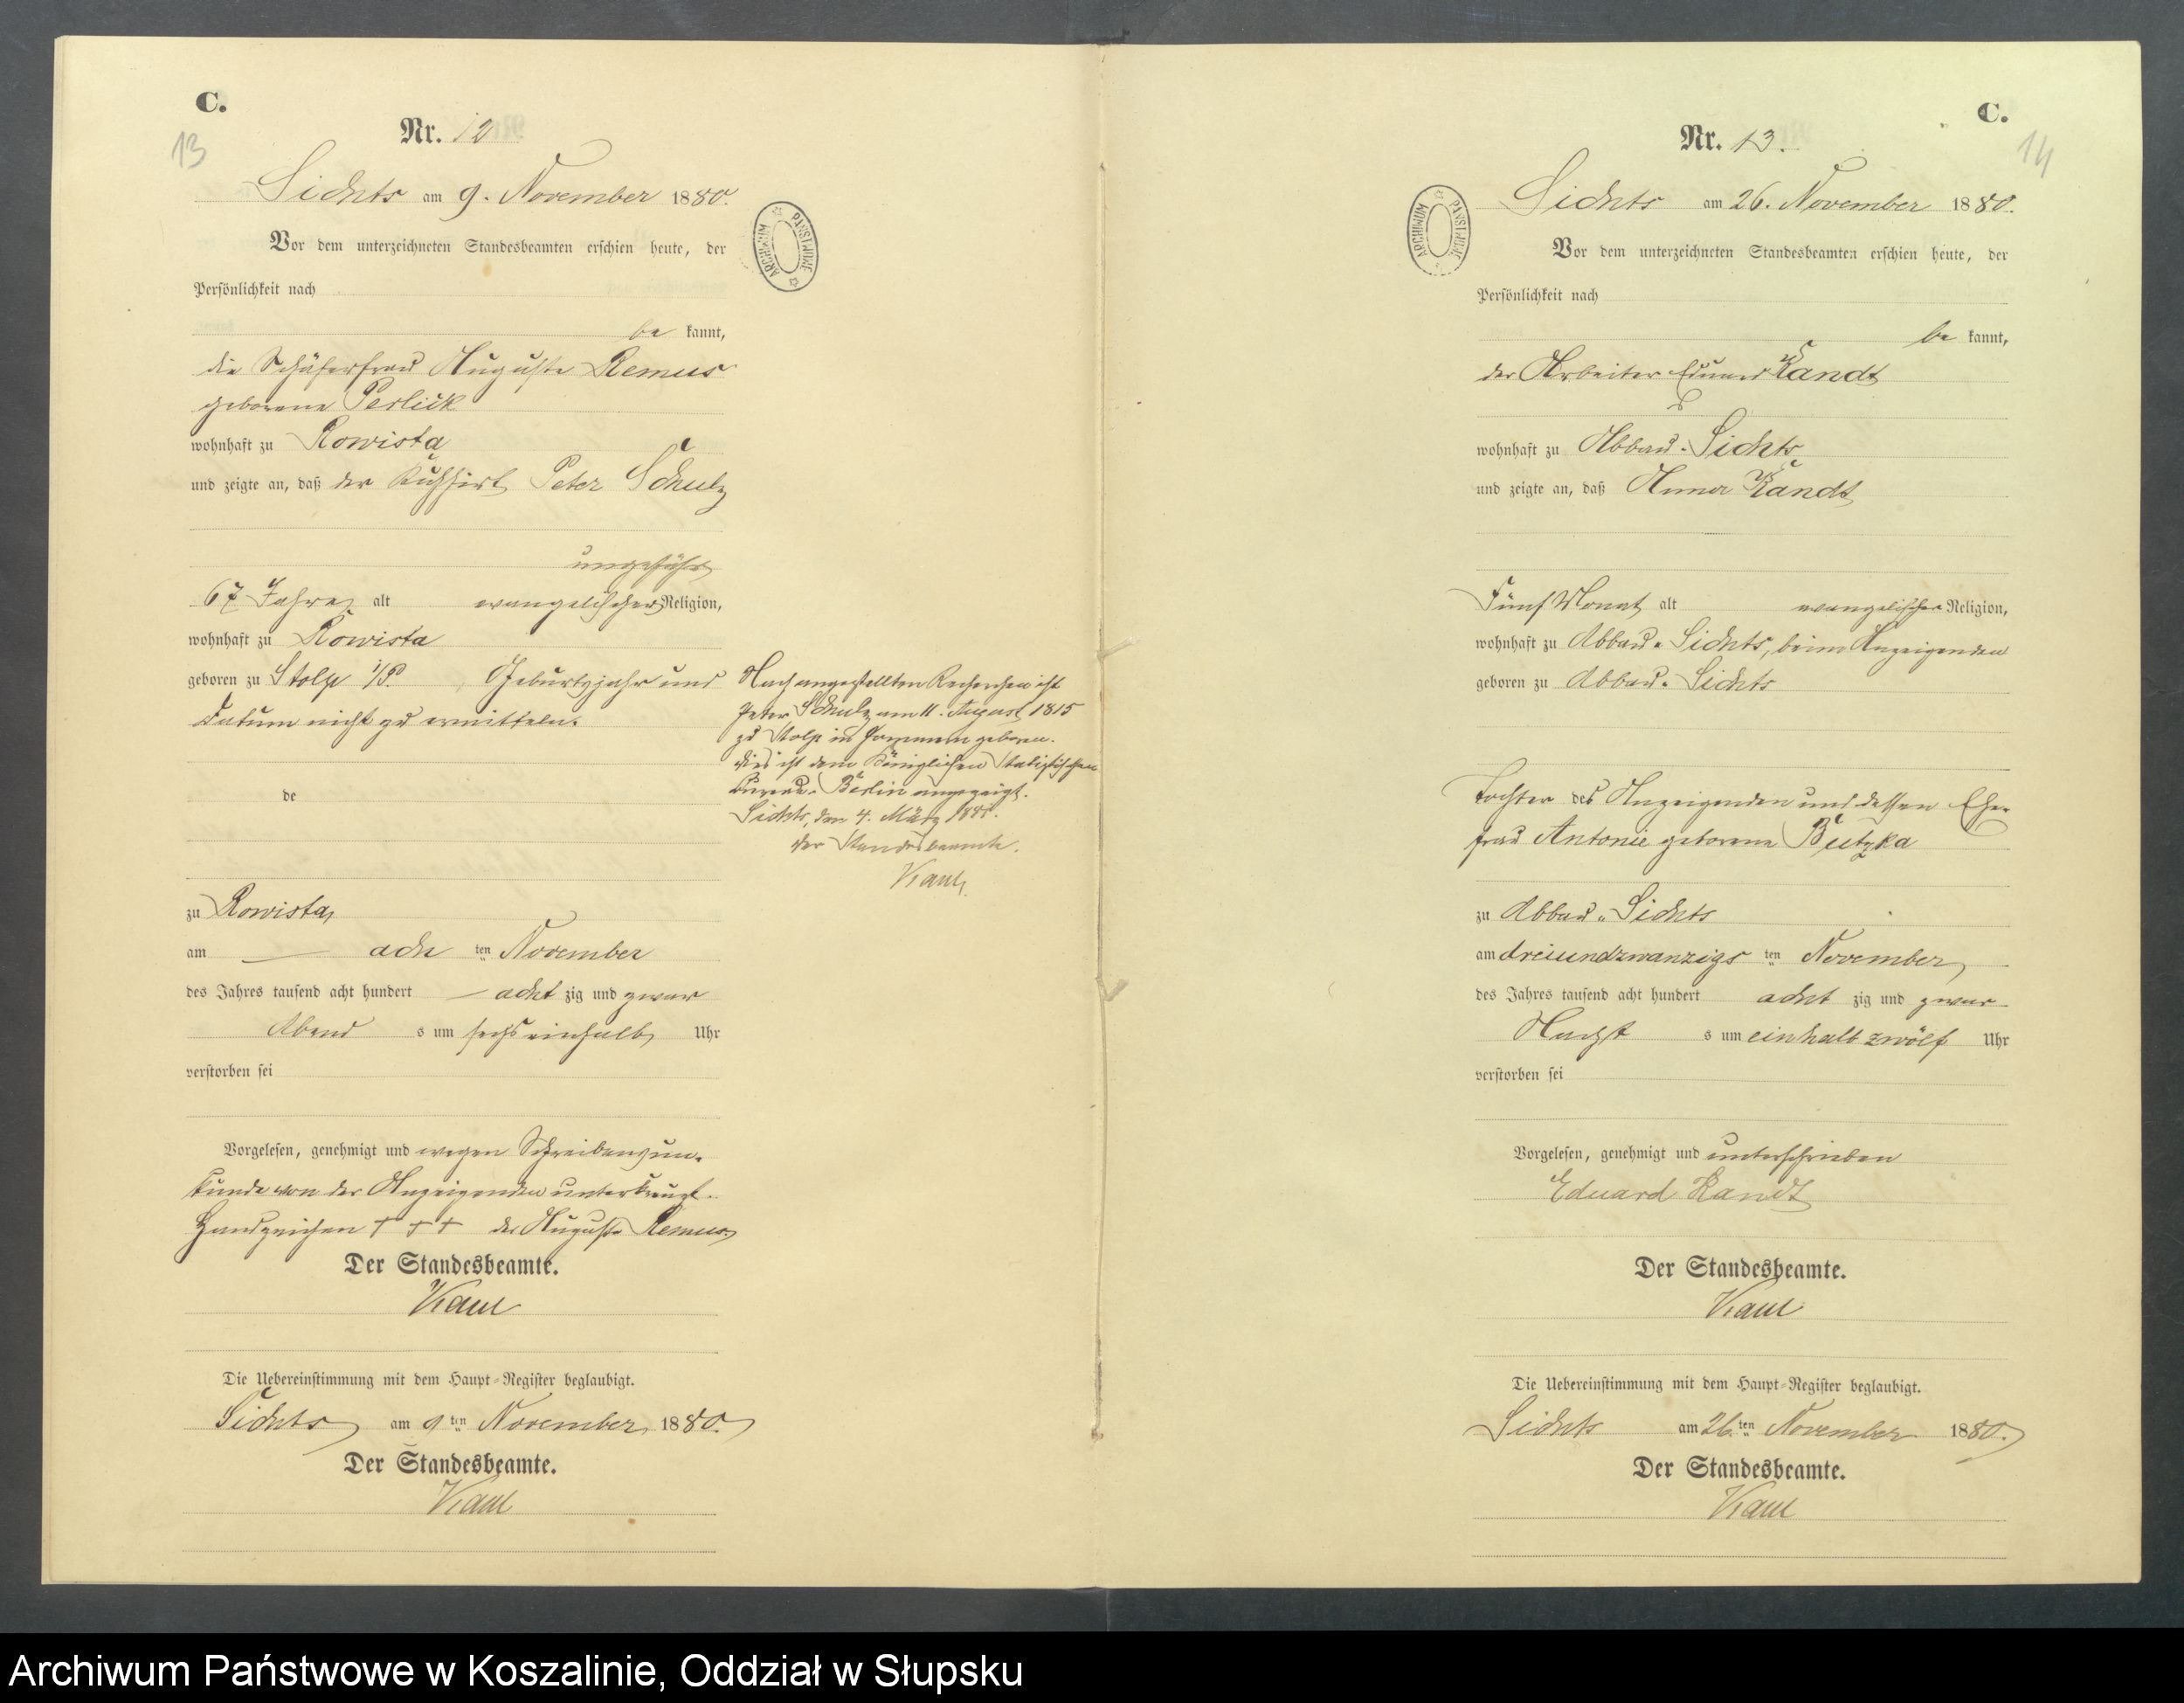 C.
13
Nr. 12
Sichts am 9. November 1880.
Vor dem unterzeichneten Standesbeamten erschien heute, der
Persönlichkeit nach
be kannt,
die Schäferfrau Auguste Remus
geborene Perlick
wohnhaft zu Kowista
und zeigte an, daß der Kuhhirt Peter Schulz
ungefähr
67 Jahre alt evangelischer Religion,
wohnhaft zu Kowista
geboren zu Stolp i/P. Geburtsjahr und
Datum nicht zu ermitteln.
de
zu Rowista,
am — ach ten November
des Jahres tausend acht hundert — acht zig und zwar
Abend s um sechseinhalb Uhr
verstorben sei
Vorgelesen, genehmigt und wegen Schreibensun-
kunde von der Anzeigenden unterkreuzt.
Handzeichen + + + der Auguste Remus
Der Standesbeamte.
Kaul
Die Uebereinstimmung mit dem Haupt-Register beglaubigt.
Sichts am 9ten November 1880.
Der Standesbeamte.
Kaul
ARCHIWUM PAŃSTWOWE
Nach angestellten Recherchen ist
Peter Schulz am 11. August 1815
zu Stolp in Pommern geboren.
Dies ist dem Königlichen Statistischen
Bureau-Berlin angezeigt.
Sichts, den 4. März 1881.
Der Standesbeamte.
Kaul
C.
14
Nr. 13.
ARCHIWUM PAŃSTWOWE
Sichts am 26. November 1880.
Vor dem unterzeichneten Standesbeamten erschien heute, der
Persönlichkeit nach
be kannt,
der Arbeiter Eduard Kandt
wohnhaft zu Abbau-Sichts
und zeigte an, daß Anna Kandt
Fünf Monat alt evangelischer Religion,
wohnhaft zu Abbau-Sichts, beim Anzeigenden
geboren zu Abbau-Sichts
Tochter des Anzeigenden und dessen Ehe-
frau Antonie geborene Butzka
zu Abbau-Sichts
am dreiundzwanzigs ten November,
des Jahres tausend acht hundert acht zig und zwar
Nacht s um einhalb zwölf Uhr
verstorben sei
Vorgelesen, genehmigt und unterschrieben
Eduard Kandt
Der Standesbeamte.
Kaul
Die Uebereinstimmung mit dem Haupt-Register beglaubigt.
Sichts am 26.ten November 1880.
Der Standesbeamte.
Kaul
Archiwum Państwowe w Koszalinie, Oddział w Słupsku